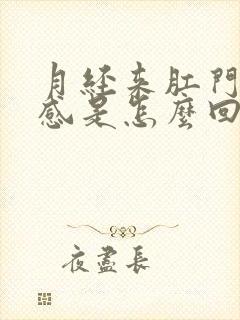 月經來肛門
感是怎麼回
夜盡長